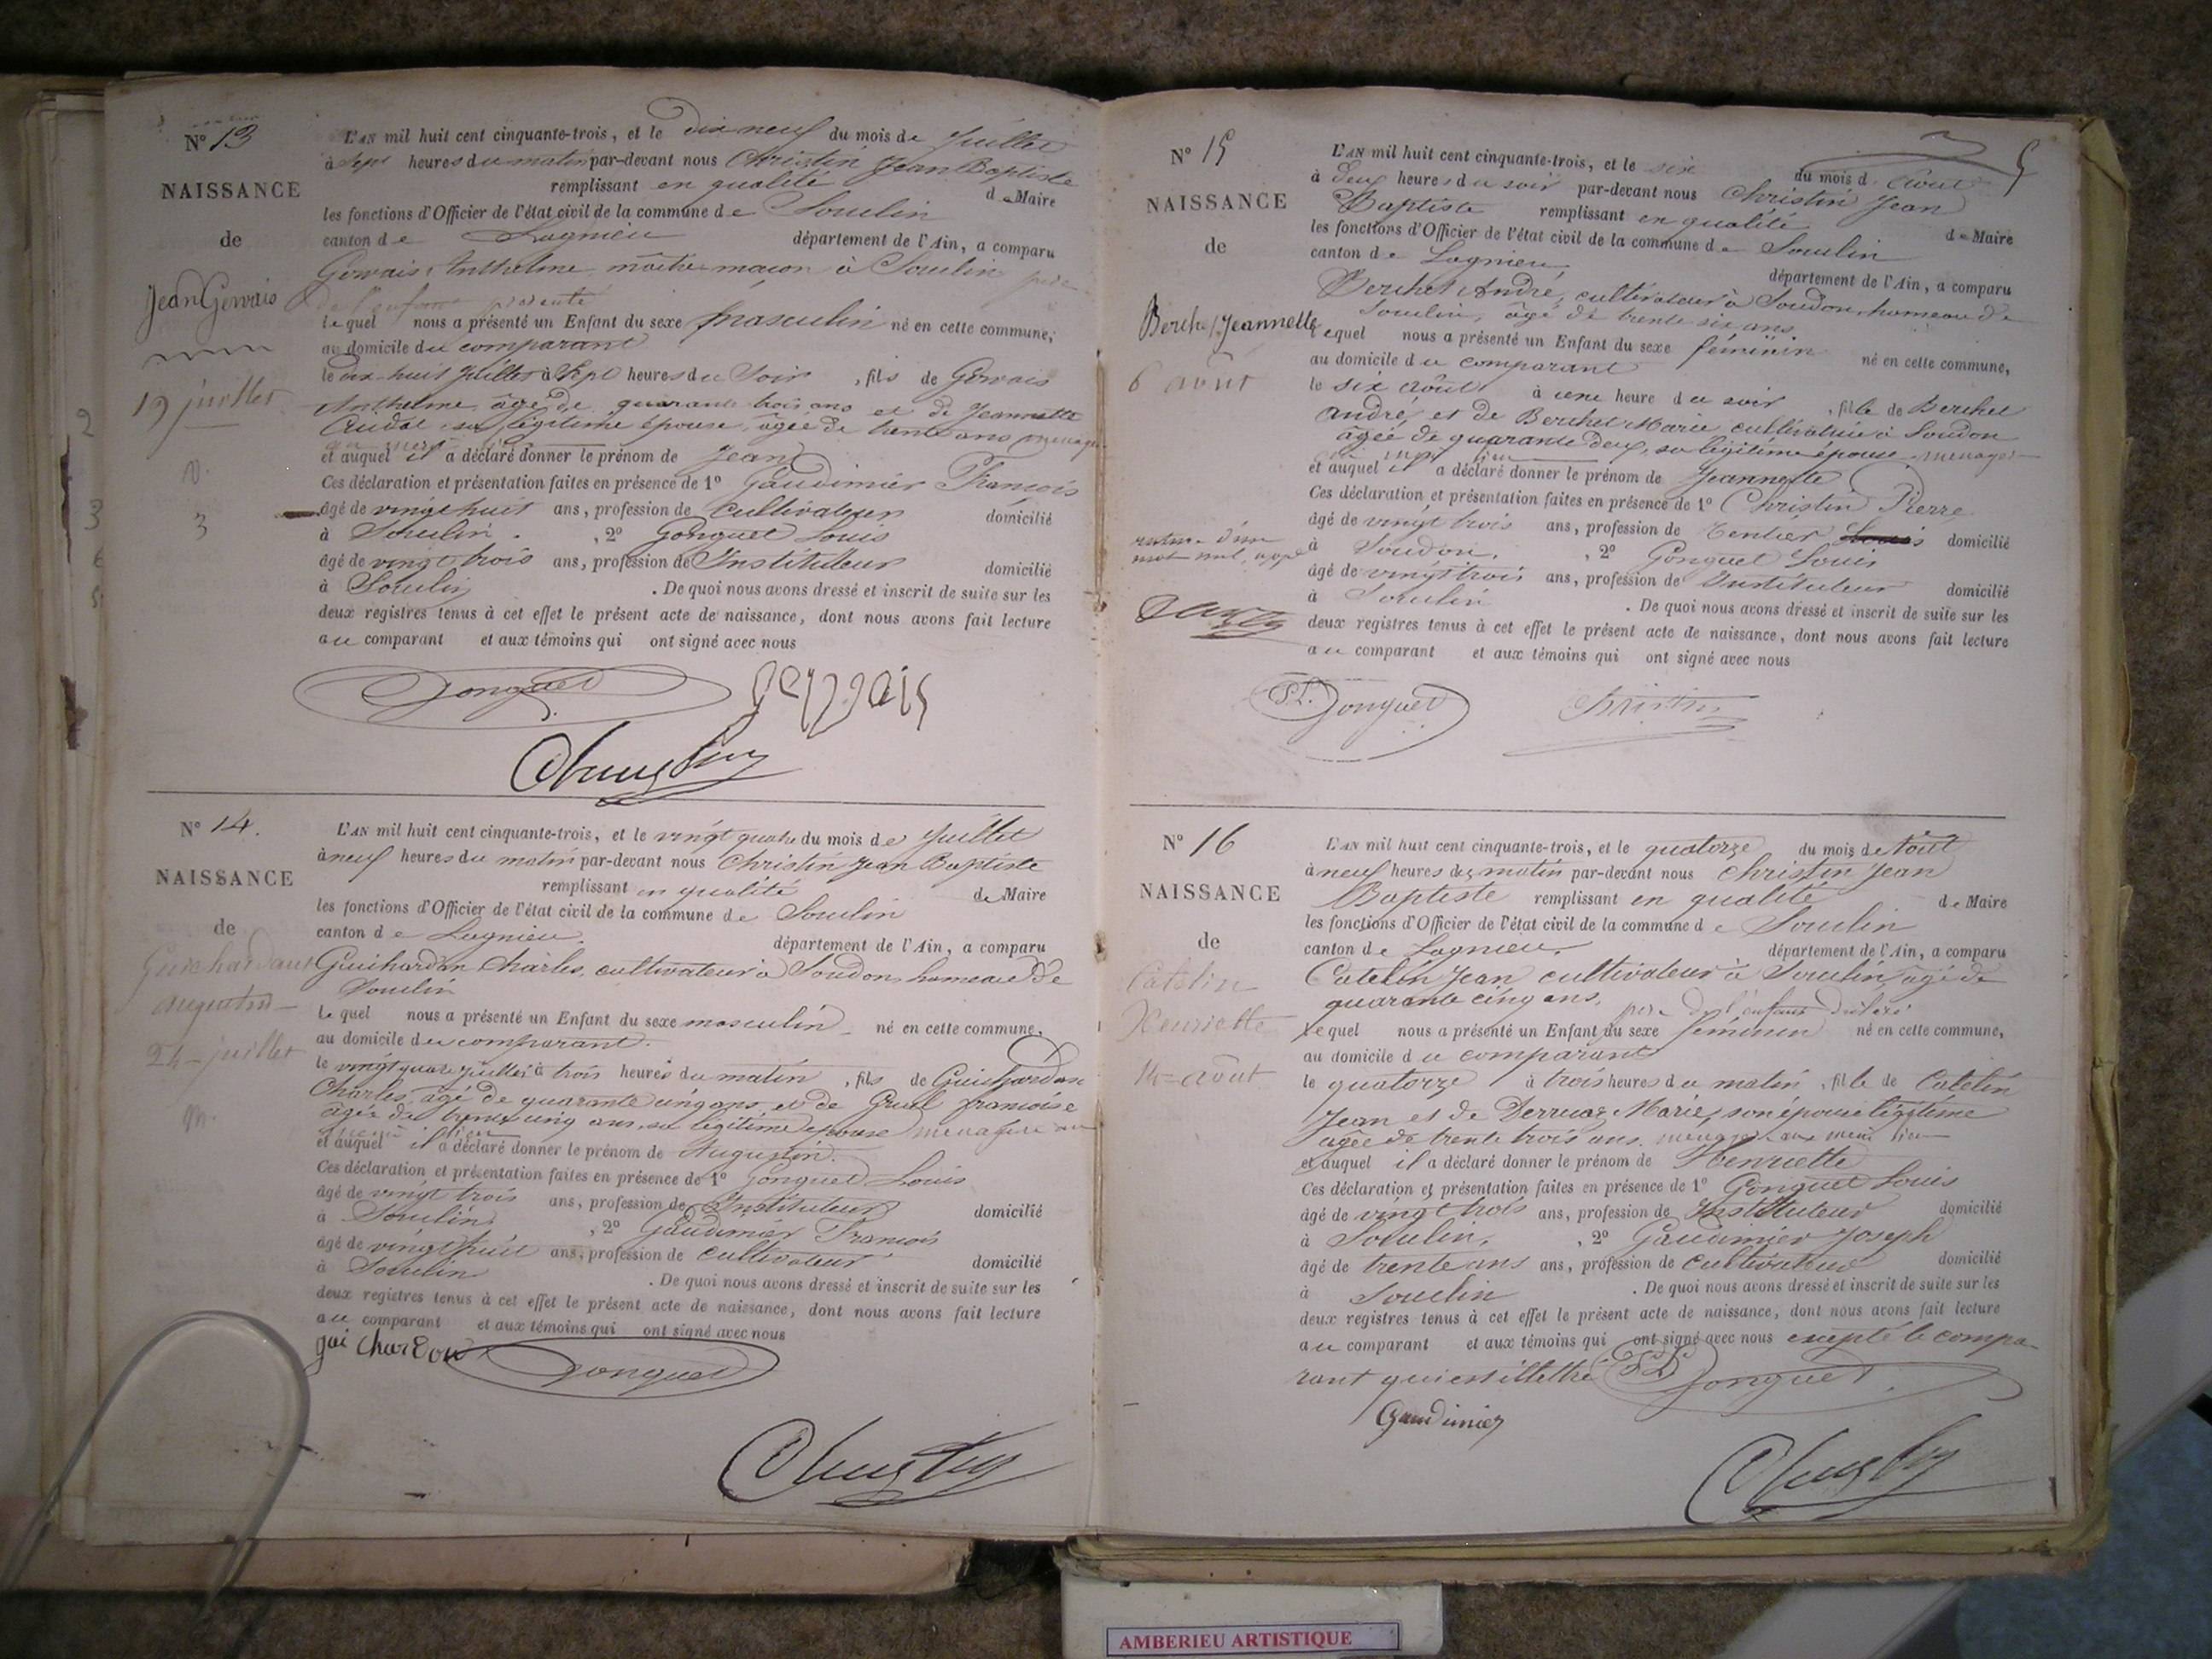 N° 13
NAISSANCE
de
Jean Gervais
19 juillet
L'AN mil huit cent cinquante-trois, et le dix neuf du mois de Juillet
à sept heures du matin par-devant nous Christin Jean Baptiste
remplissant en qualité de Maire
les fonctions d'Officier de l'état civil de la commune de Soulin
canton de Lagnieu département de l'Ain, a comparu
Gervais Anthelme maître maçon à Soulin père
de l'enfant présenté
lequel nous a présenté un Enfant du sexe masculin né en cette commune,
au domicile du comparant
le dix-huit Juillet à sept heures du soir, fils de Gervais
Anthelme âgé de quarante trois ans et de Jeannette
sa légitime épouse, âgée de trente ans
et auquel il a déclaré donner le prénom de Jean
Ces déclaration et présentation faites en présence de 1° Gaudimier François
âgé de vingt huit ans, profession de cultivateur domicilié
à Soulin. , 2° Gonguet Louis
âgé de vingt trois ans, profession de Instituteur domicilié
à Soulin . De quoi nous avons dressé et inscrit de suite sur les
deux registres tenus à cet effet le présent acte de naissance, dont nous avons fait lecture
au comparant et aux témoins qui ont signé avec nous
Gonguet Gervais
Christin
N° 14.
NAISSANCE
de
Guichardant
Augustin
24 juillet
L'AN mil huit cent cinquante-trois, et le vingt quatre du mois de Juillet
à neuf heures du matin par-devant nous Christin Jean Baptiste
remplissant en qualité de Maire
les fonctions d'Officier de l'état civil de la commune de Soulin
canton de Lagnieu. département de l'Ain, a comparu
Guichardan Charles, cultivateur à Soudon hameau de
Soulin
lequel nous a présenté un Enfant du sexe masculin né en cette commune,
au domicile du comparant.
le vingt quatre juillet à trois heures du matin, fils de Guichardan
Charles, âgé de quarante cinq ans et de Françoise
âgée de trente cinq ans, sa légitime épouse ménagère au
même lieu
et auquel il a déclaré donner le prénom de Augustin.
Ces déclaration et présentation faites en présence de 1° Gonguet Louis
âgé de vingt trois ans, profession de Instituteur domicilié
à Soulin , 2° Gaudimier François
âgé de vingt huit ans, profession de cultivateur domicilié
à Soulin . De quoi nous avons dressé et inscrit de suite sur les
deux registres tenus à cet effet le présent acte de naissance, dont nous avons fait lecture
au comparant et aux témoins qui ont signé avec nous
gui chardon Gonguet
Christin
N° 15
NAISSANCE
de
Berchet Jeannette
6 août
L'AN mil huit cent cinquante-trois, et le six du mois d'Août
à deux heures du soir par-devant nous Christin Jean
Baptiste remplissant en qualité de Maire
les fonctions d'Officier de l'état civil de la commune de Soulin
canton de Lagnieu département de l'Ain, a comparu
Berchet André, cultivateur à Soudon, hameau de
Soulin, âgé de trente six ans
lequel nous a présenté un Enfant du sexe féminin né en cette commune,
au domicile du comparant
le six Août à une heure du soir, fille de Berchet
André, et de Berchet Marie cultivatrice à Soudon
âgée de quarante deux, sa légitime épouse
et auquel il a déclaré donner le prénom de Jeannette
Ces déclaration et présentation faites en présence de 1° Christin Pierre
âgé de vingt trois ans, profession de rentier domicilié
à Soudon, , 2° Gonguet Louis
âgé de vingt trois ans, profession de Instituteur domicilié
à Soulin . De quoi nous avons dressé et inscrit de suite sur les
deux registres tenus à cet effet le présent acte de naissance, dont nous avons fait lecture
au comparant et aux témoins qui ont signé avec nous
Gonguet Christin
N° 16
NAISSANCE
de
Catelin
Henriette
14 août
L'AN mil huit cent cinquante-trois, et le quatorze du mois de Août
à neuf heures du matin par-devant nous Christin Jean
Baptiste remplissant en qualité de Maire
les fonctions d'Officier de l'état civil de la commune de Soulin
canton de Lagnieu. département de l'Ain, a comparu
Catelin Jean cultivateur à Soulin, âgé de
quarante cinq ans, père de l'enfant
lequel nous a présenté un Enfant du sexe féminin né en cette commune,
au domicile du comparant
le quatorze à trois heures du matin, fille de Catelin
Jean et de Marie, son épouse légitime
âgée de trente trois ans. ménagère au même lieu
et auquel il a déclaré donner le prénom de Henriette
Ces déclaration et présentation faites en présence de 1° Gonguet Louis
âgé de vingt trois ans, profession de Instituteur domicilié
à Soulin, , 2° Gaudimier Joseph
âgé de trente ans ans, profession de cultivateur domicilié
à Soulin . De quoi nous avons dressé et inscrit de suite sur les
deux registres tenus à cet effet le présent acte de naissance, dont nous avons fait lecture
au comparant et aux témoins qui ont signé avec nous excepté le compa-
rant qui est illettré Gonguet
Gaudimier
Christin
AMBERIEU ARTISTIQUE